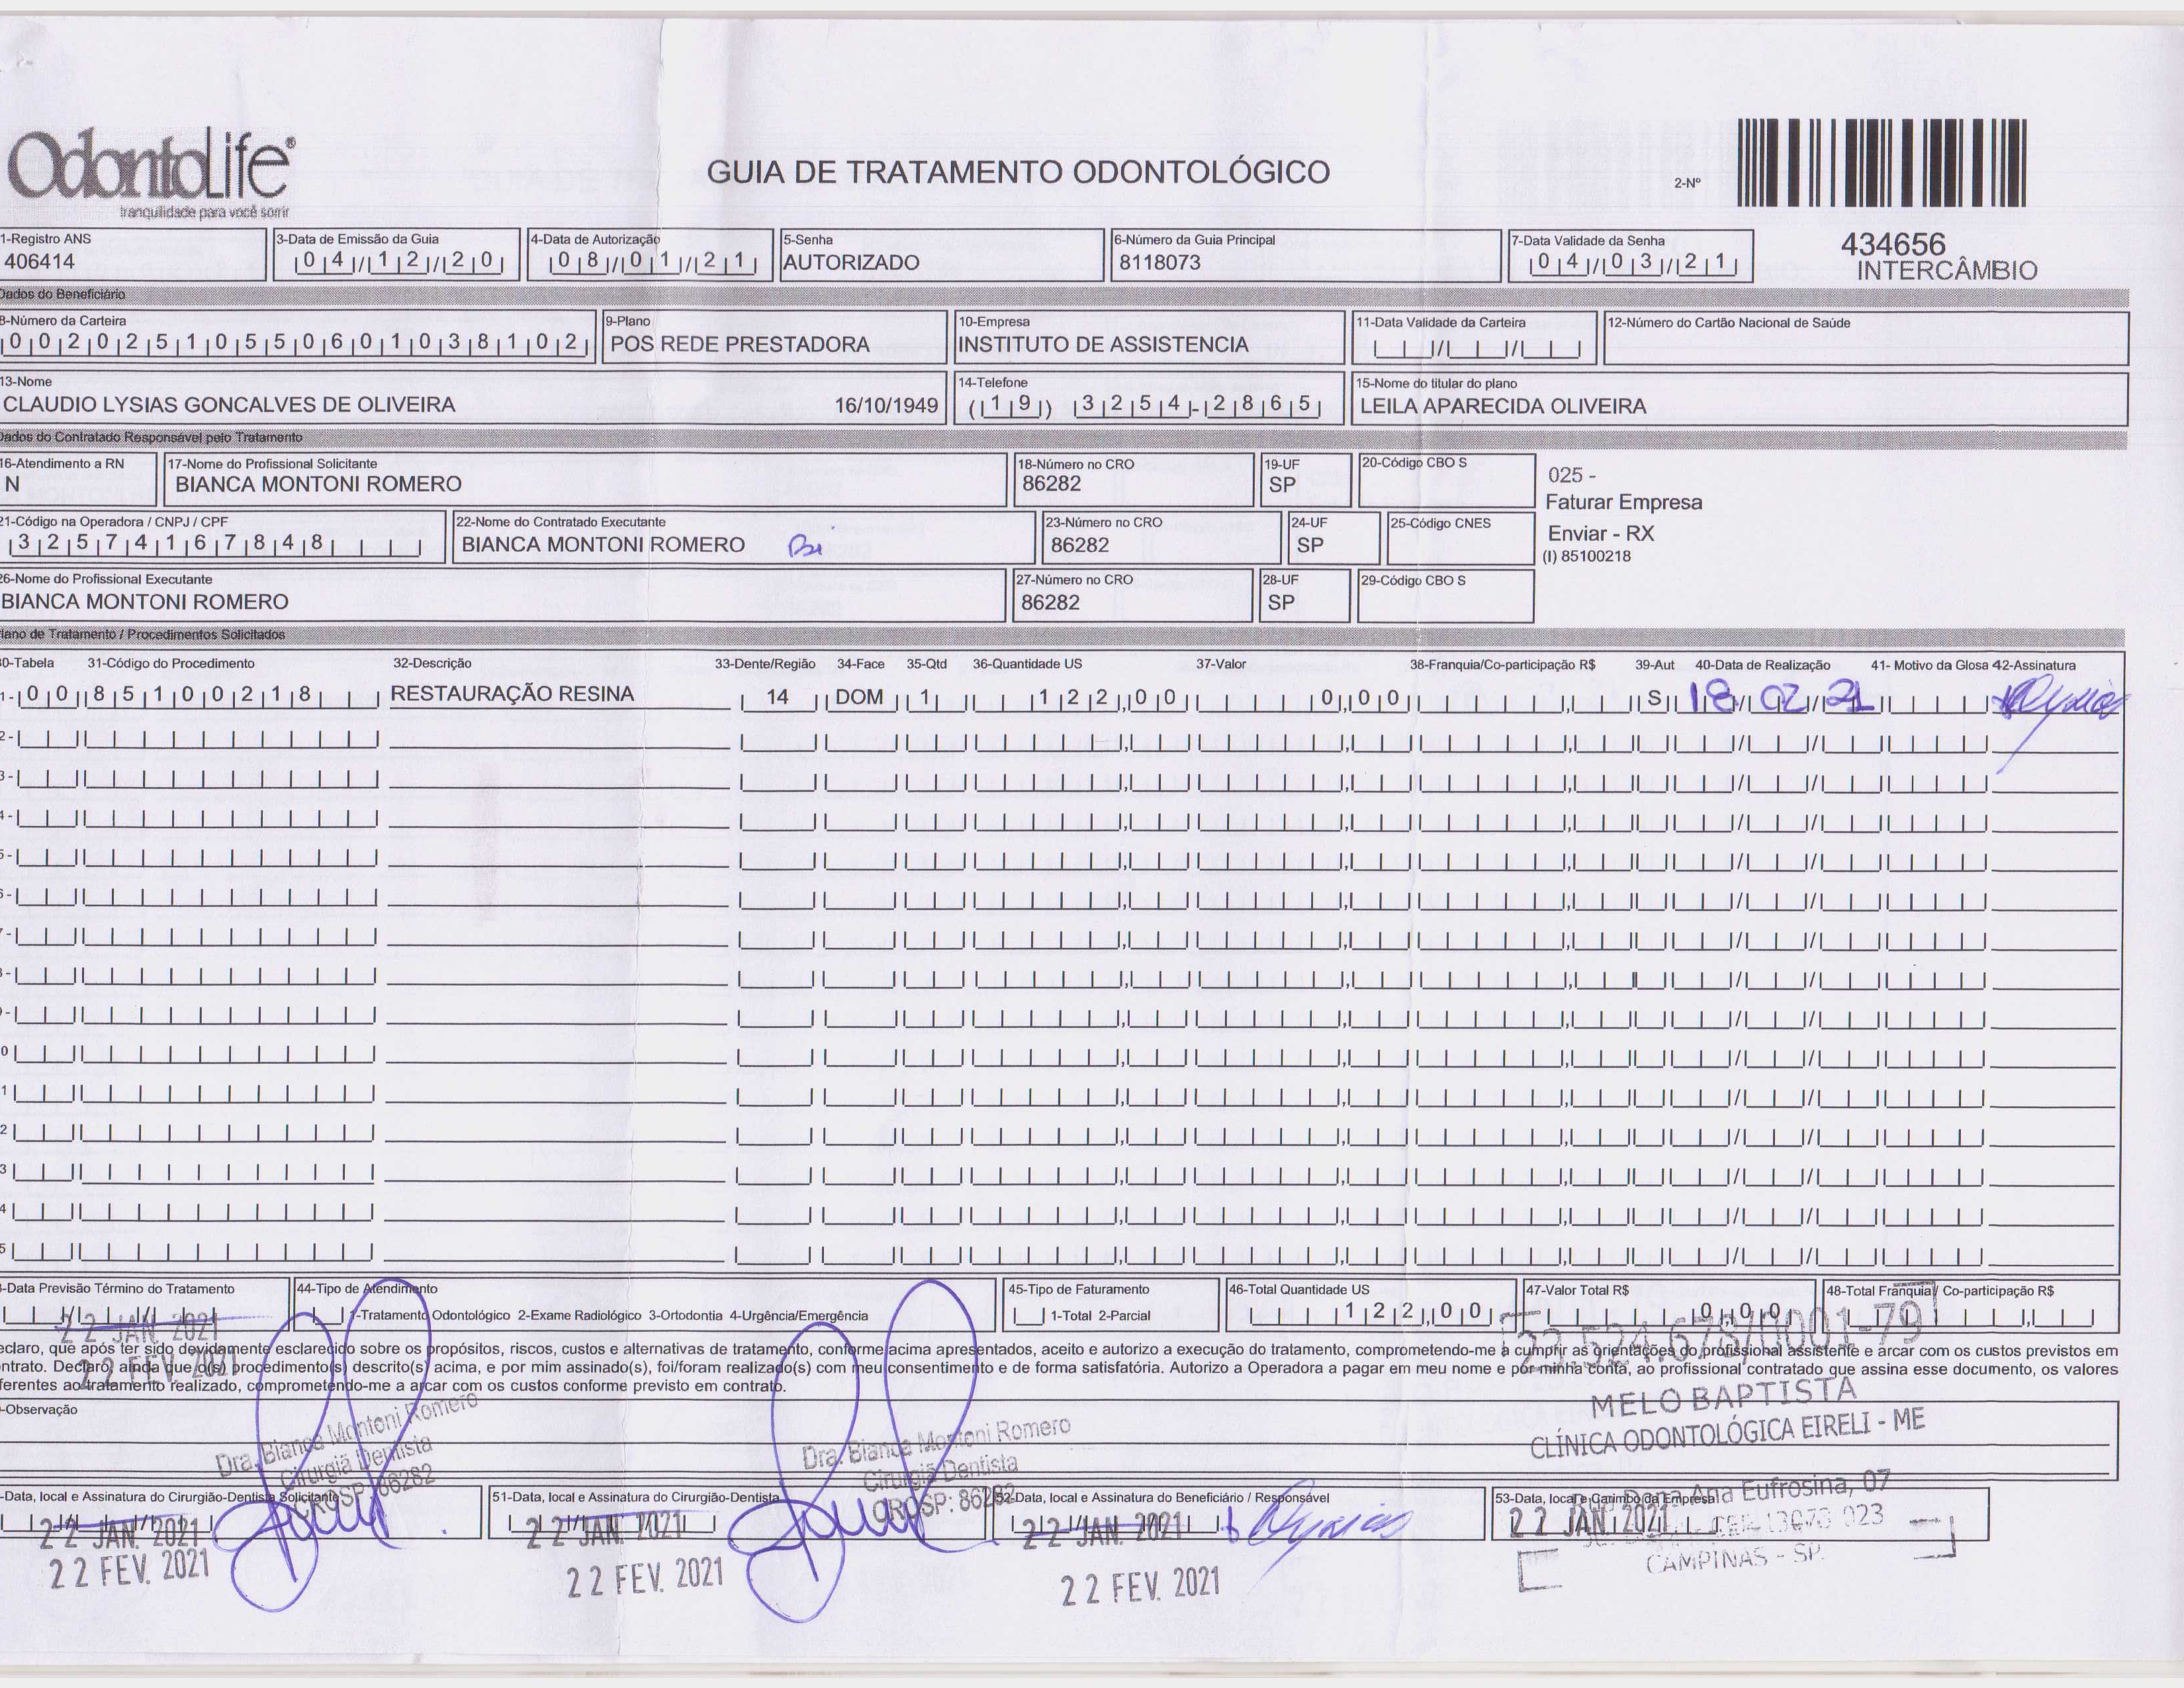 OdontoLife®
tranquilidade para você sorrir
GUIA DE TRATAMENTO ODONTOLÓGICO
2-Nº
434656
INTERCÂMBIO
1-Registro ANS
406414
3-Data de Emissão da Guia
04/12/20
4-Data de Autorização
08/01/21
5-Senha
AUTORIZADO
6-Número da Guia Principal
8118073
7-Data Validade da Senha
04/03/21
Dados do Beneficiário
8-Número da Carteira
00202510550601038102
9-Plano
POS REDE PRESTADORA
10-Empresa
INSTITUTO DE ASSISTENCIA
11-Data Validade da Carteira
12-Número do Cartão Nacional de Saúde
13-Nome
CLAUDIO LYSIAS GONCALVES DE OLIVEIRA 16/10/1949
14-Telefone
(19) 3254-2865
15-Nome do titular do plano
LEILA APARECIDA OLIVEIRA
Dados do Contratado Responsável pelo Tratamento
16-Atendimento a RN
N
17-Nome do Profissional Solicitante
BIANCA MONTONI ROMERO
18-Número no CRO
86282
19-UF
SP
20-Código CBO S
025 -
Faturar Empresa
Enviar - RX
(I) 85100218
21-Código na Operadora / CNPJ / CPF
32574167848
22-Nome do Contratado Executante
BIANCA MONTONI ROMERO Bi
23-Número no CRO
86282
24-UF
SP
25-Código CNES
26-Nome do Profissional Executante
BIANCA MONTONI ROMERO
27-Número no CRO
86282
28-UF
SP
29-Código CBO S
lano de Tratamento / Procedimentos Solicitados
30-Tabela 31-Código do Procedimento 32-Descrição 33-Dente/Região 34-Face 35-Qtd 36-Quantidade US 37-Valor 38-Franquia/Co-participação R$ 39-Aut 40-Data de Realização 41- Motivo da Glosa 42-Assinatura
1- 00 85100218 RESTAURAÇÃO RESINA 14 DOM 1 122,00 0,00 S 18/02/21
2-
3-
4-
5-
6-
7-
8-
9-
0
1
2
3
4
5
-Data Previsão Término do Tratamento
22 JAN. 2021
22 FEV. 2021
44-Tipo de Atendimento
1-Tratamento Odontológico 2-Exame Radiológico 3-Ortodontia 4-Urgência/Emergência
45-Tipo de Faturamento
1-Total 2-Parcial
46-Total Quantidade US
122,00
47-Valor Total R$
0,00
48-Total Franquia/ Co-participação R$
eclaro, que após ter sido devidamente esclarecido sobre os propósitos, riscos, custos e alternativas de tratamento, conforme acima apresentados, aceito e autorizo a execução do tratamento, comprometendo-me a cumprir as orientações do profissional assistente e arcar com os custos previstos em
ntrato. Declaro ainda que o(s) procedimento(s) descrito(s) acima, e por mim assinado(s), foi/foram realizado(s) com meu consentimento e de forma satisfatória. Autorizo a Operadora a pagar em meu nome e por minha conta, ao profissional contratado que assina esse documento, os valores
ferentes ao tratamento realizado, comprometendo-me a arcar com os custos conforme previsto em contrato.
-Observação
Dra. Bianca Montoni Romero
Cirurgiã Dentista
CROSP: 86282
Dra. Bianca Montoni Romero
Cirurgiã Dentista
CROSP: 86282
22.524.678/0001-79
MELO BAPTISTA
CLÍNICA ODONTOLÓGICA EIRELI - ME
Dona Ana Eufrosina, 07
CEP 13073 023
CAMPINAS - SP.
-Data, local e Assinatura do Cirurgião-Dentista Solicitante
22 JAN. 2021
22 FEV. 2021
51-Data, local e Assinatura do Cirurgião-Dentista
22 JAN. 2021
22 FEV. 2021
52-Data, local e Assinatura do Beneficiário / Responsável
22 JAN. 2021
22 FEV. 2021
53-Data, local e Carimbo da Empresa
22 JAN. 2021